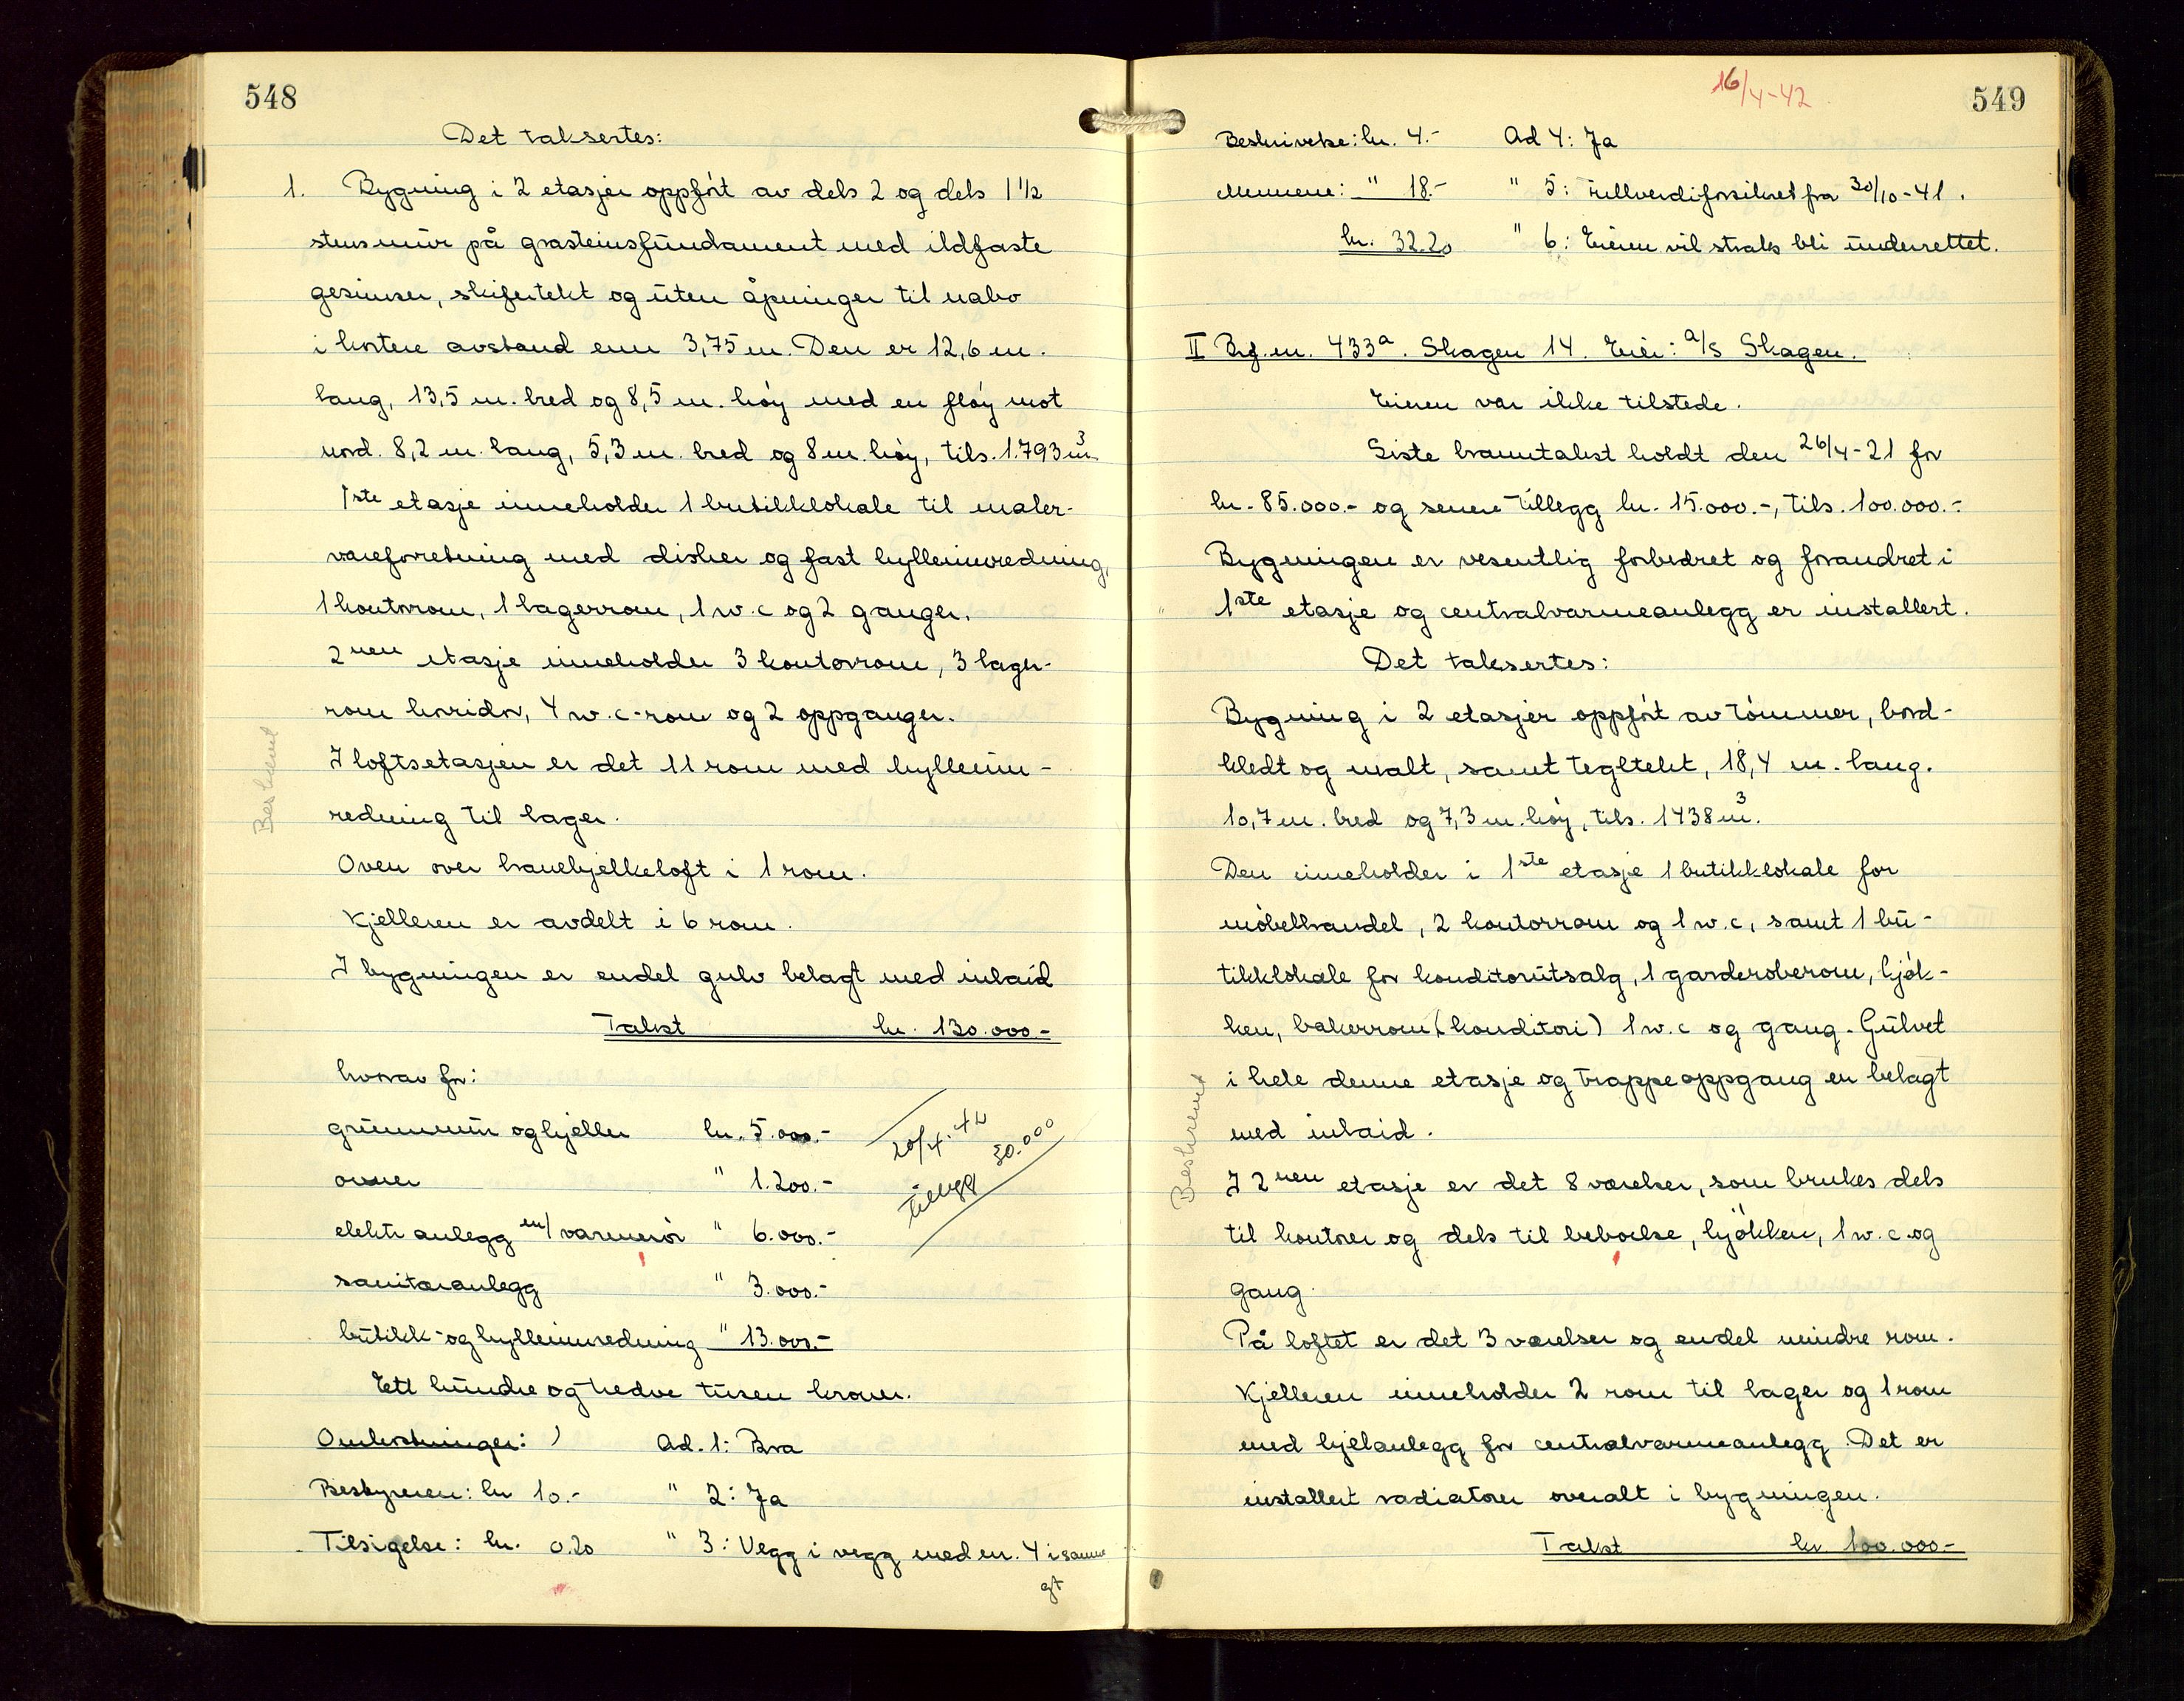 548
Det taksertes:
1. Bygning i 2 etasjer oppført av dels 2 og dels 1 1/2
stens mur på gråsteinsfundament med ildfaste
gesimser, skifertekt og uten åpninger til nabo
i kortere avstand enn 3,75 m. Den er 12,6 m.
lang, 13,5 m. bred og 8,5 m. høy med en fløy mot
nord. 8,2 m. lang, 5,3 m. bred og 8 m. høy, tils. 1.793 m³
1ste etasje inneholder 1 butikklokale til maler-
vareforretning med disker og fast hylleinnredning,
1 kontorrom, 1 lagerrom, 1 w.c og 2 ganger.
2nen etasje inneholder 3 kontorrom, 3 lager-
rom korridor, 4 w.c-rom og 2 oppganger.
I loftsetasjen er det 11 rom med hylleinn-
redning til lager.
Oven over hanebjelkeloft i 1 rom.
Kjelleren er avdelt i 6 rom.
I bygningen er endel gulv belagt med inlaid
Takst kr. 130.000.-
hvorav for:
grunnmur og kjeller kr. 5.000.-
ovner " 1.200.-
elektr anlegg m/varmerør " 6.000.-
sanitæranlegg " 3.000.-
butikk- og hylleinnredning " 13.000.-
20/4-42
Tillegg 30.000
Ett hundre og tredve tusen kroner.
Omkostninger: Ad. 1: Bra
Bestyreren: kr 10.- " 2: Ja
Tilsigelse: kr. 0.20 " 3: Vegg i vegg med nr. 4 i samme
gt
Beskrevet
16/4-42
549
Beskrivelse: kr. 4.- Ad 4: Ja
Mennene: " 18.- " 5: Fullverdiforsikret fra 30/10-41.
kr. 32.20 " 6: Eieren vil straks bli underrettet.
II Br.f. nr. 433a. Skagen 14. Eier: A/S Skagen.
Eieren var ikke tilstede.
Siste branntakst holdt den 26/4-21 for
kr. 85.000.- og senere tillegg kr. 15.000.-, tils. 100.000.-
Bygningen er vesentlig forbedret og forandret i
1ste etasje og centralvarmeanlegg er installert.
Det taksertes:
Bygning i 2 etasjer oppført av tømmer, bord-
kledt og malt, samt tegltekt, 18,4 m. lang.
10,7 m. bred og 7,3 m. høy, tils. 1438 m³.
Den inneholder i 1ste etasje 1 butikklokale for
møbelhandel, 2 kontorrom og 1 w.c, samt 1 bu-
tikklokale for konditorutsalg, 1 garderoberom, kjøk-
ken, bakerrom (konditori) 1 w.c og gang. Gulvet
i hele denne etasje og trappeoppgang er belagt
med inlaid.
I 2nen etasje er det 8 værelser, som brukes dels
til kontorer og dels til beboelse, kjøkken, 1 w.c og
gang.
På loftet er det 3 værelser og endel mindre rom.
Kjelleren inneholder 2 rom til lager og 1 rom
med kjelanlegg for centralvarmeanlegg. Det er
installert radiatorer overalt i bygningen.
Takst kr 100.000.-
Beskrevet